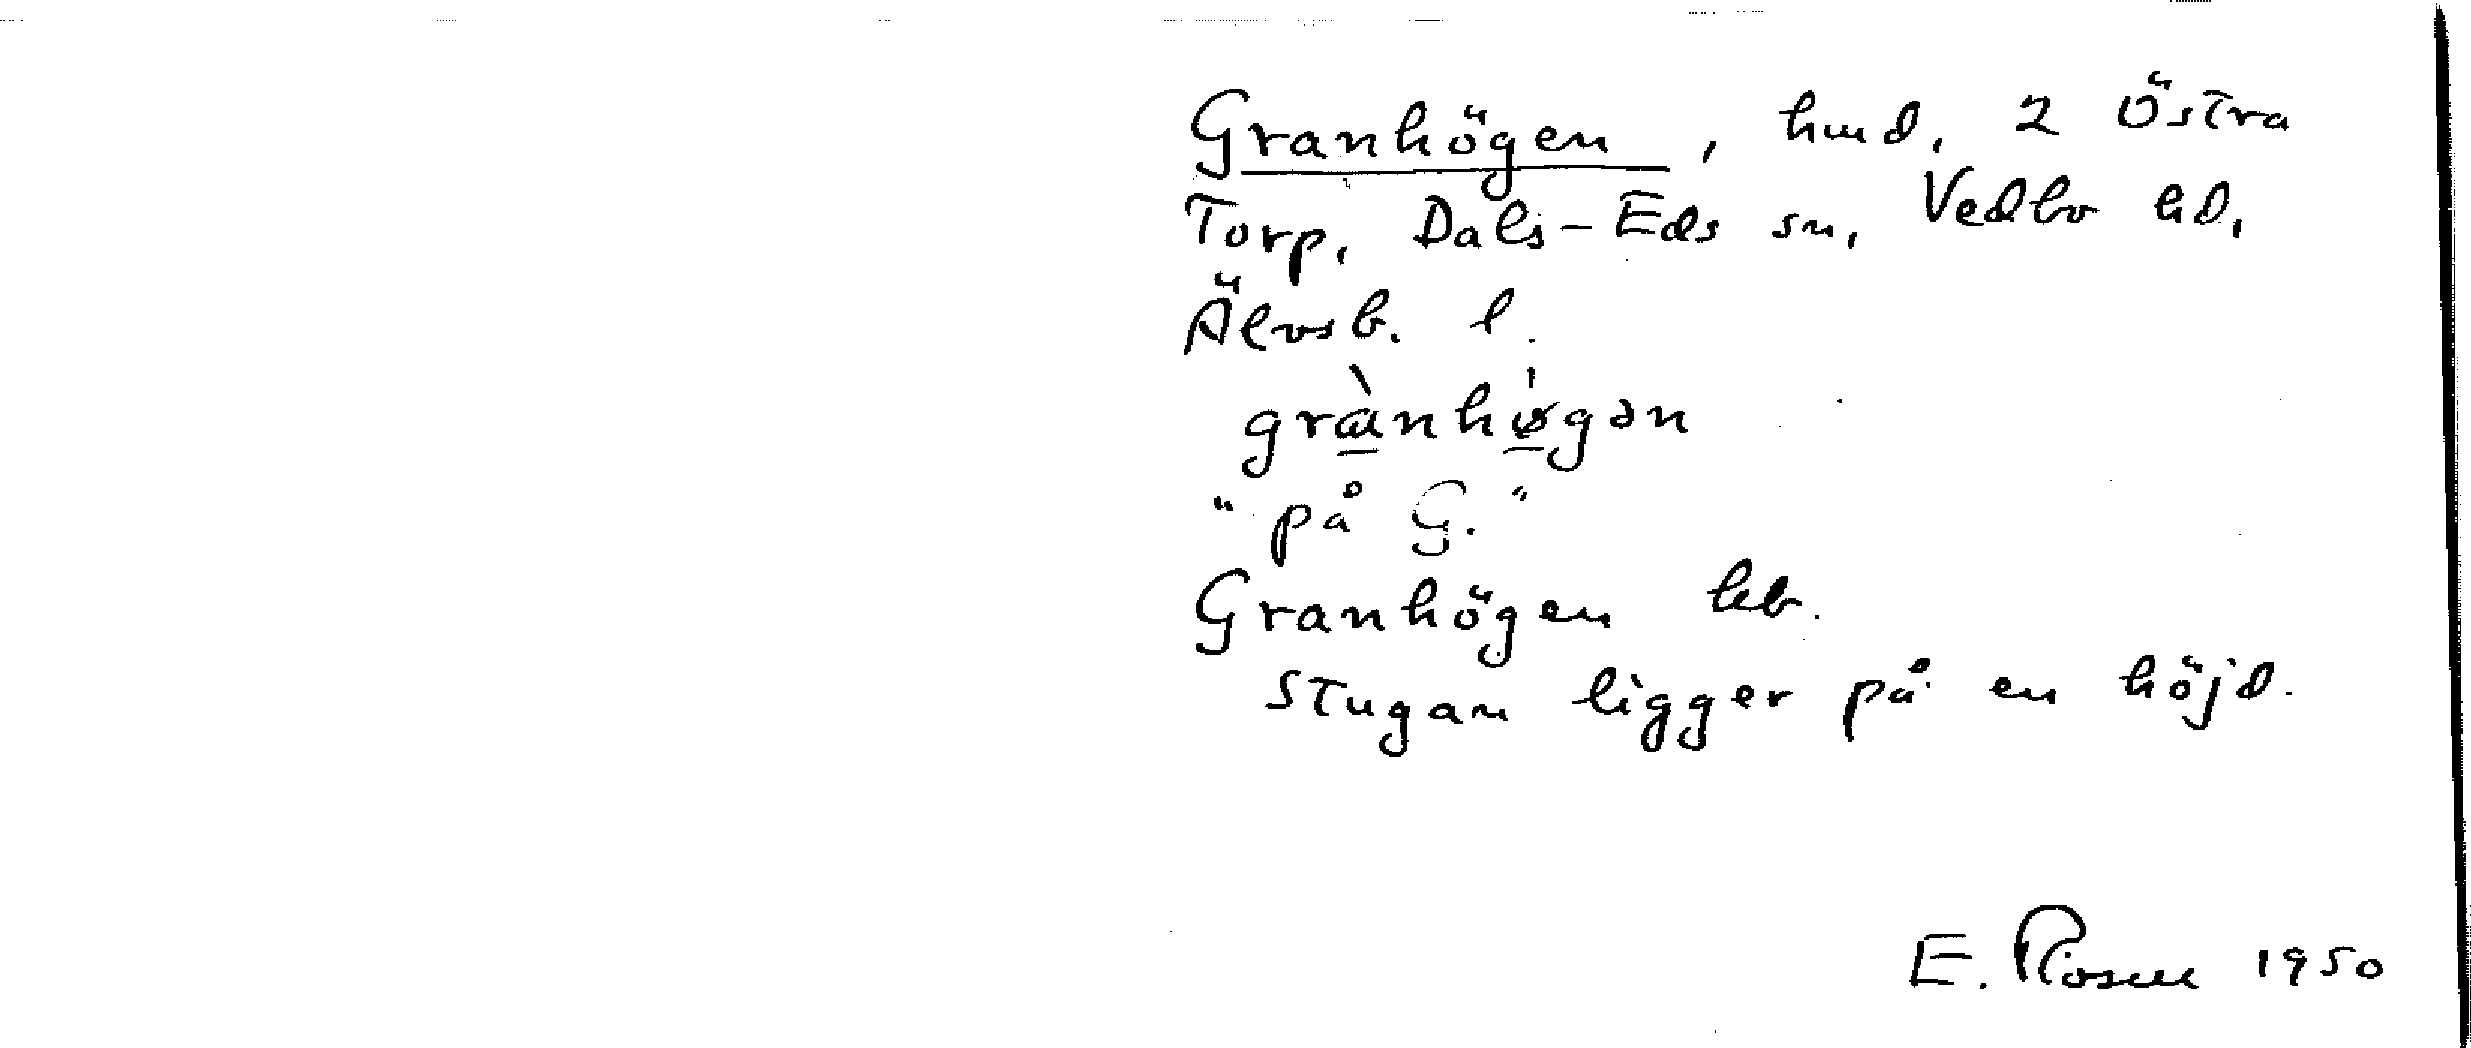 Granhögen, hmd. 2 Östra
Torp, Dals-Eds sn, Vedbo hd,
Älvsb. l.
grànhøgən
"på G."
Granhögen kb.
Stugan ligger på en höjd.
E. Rosell 1950